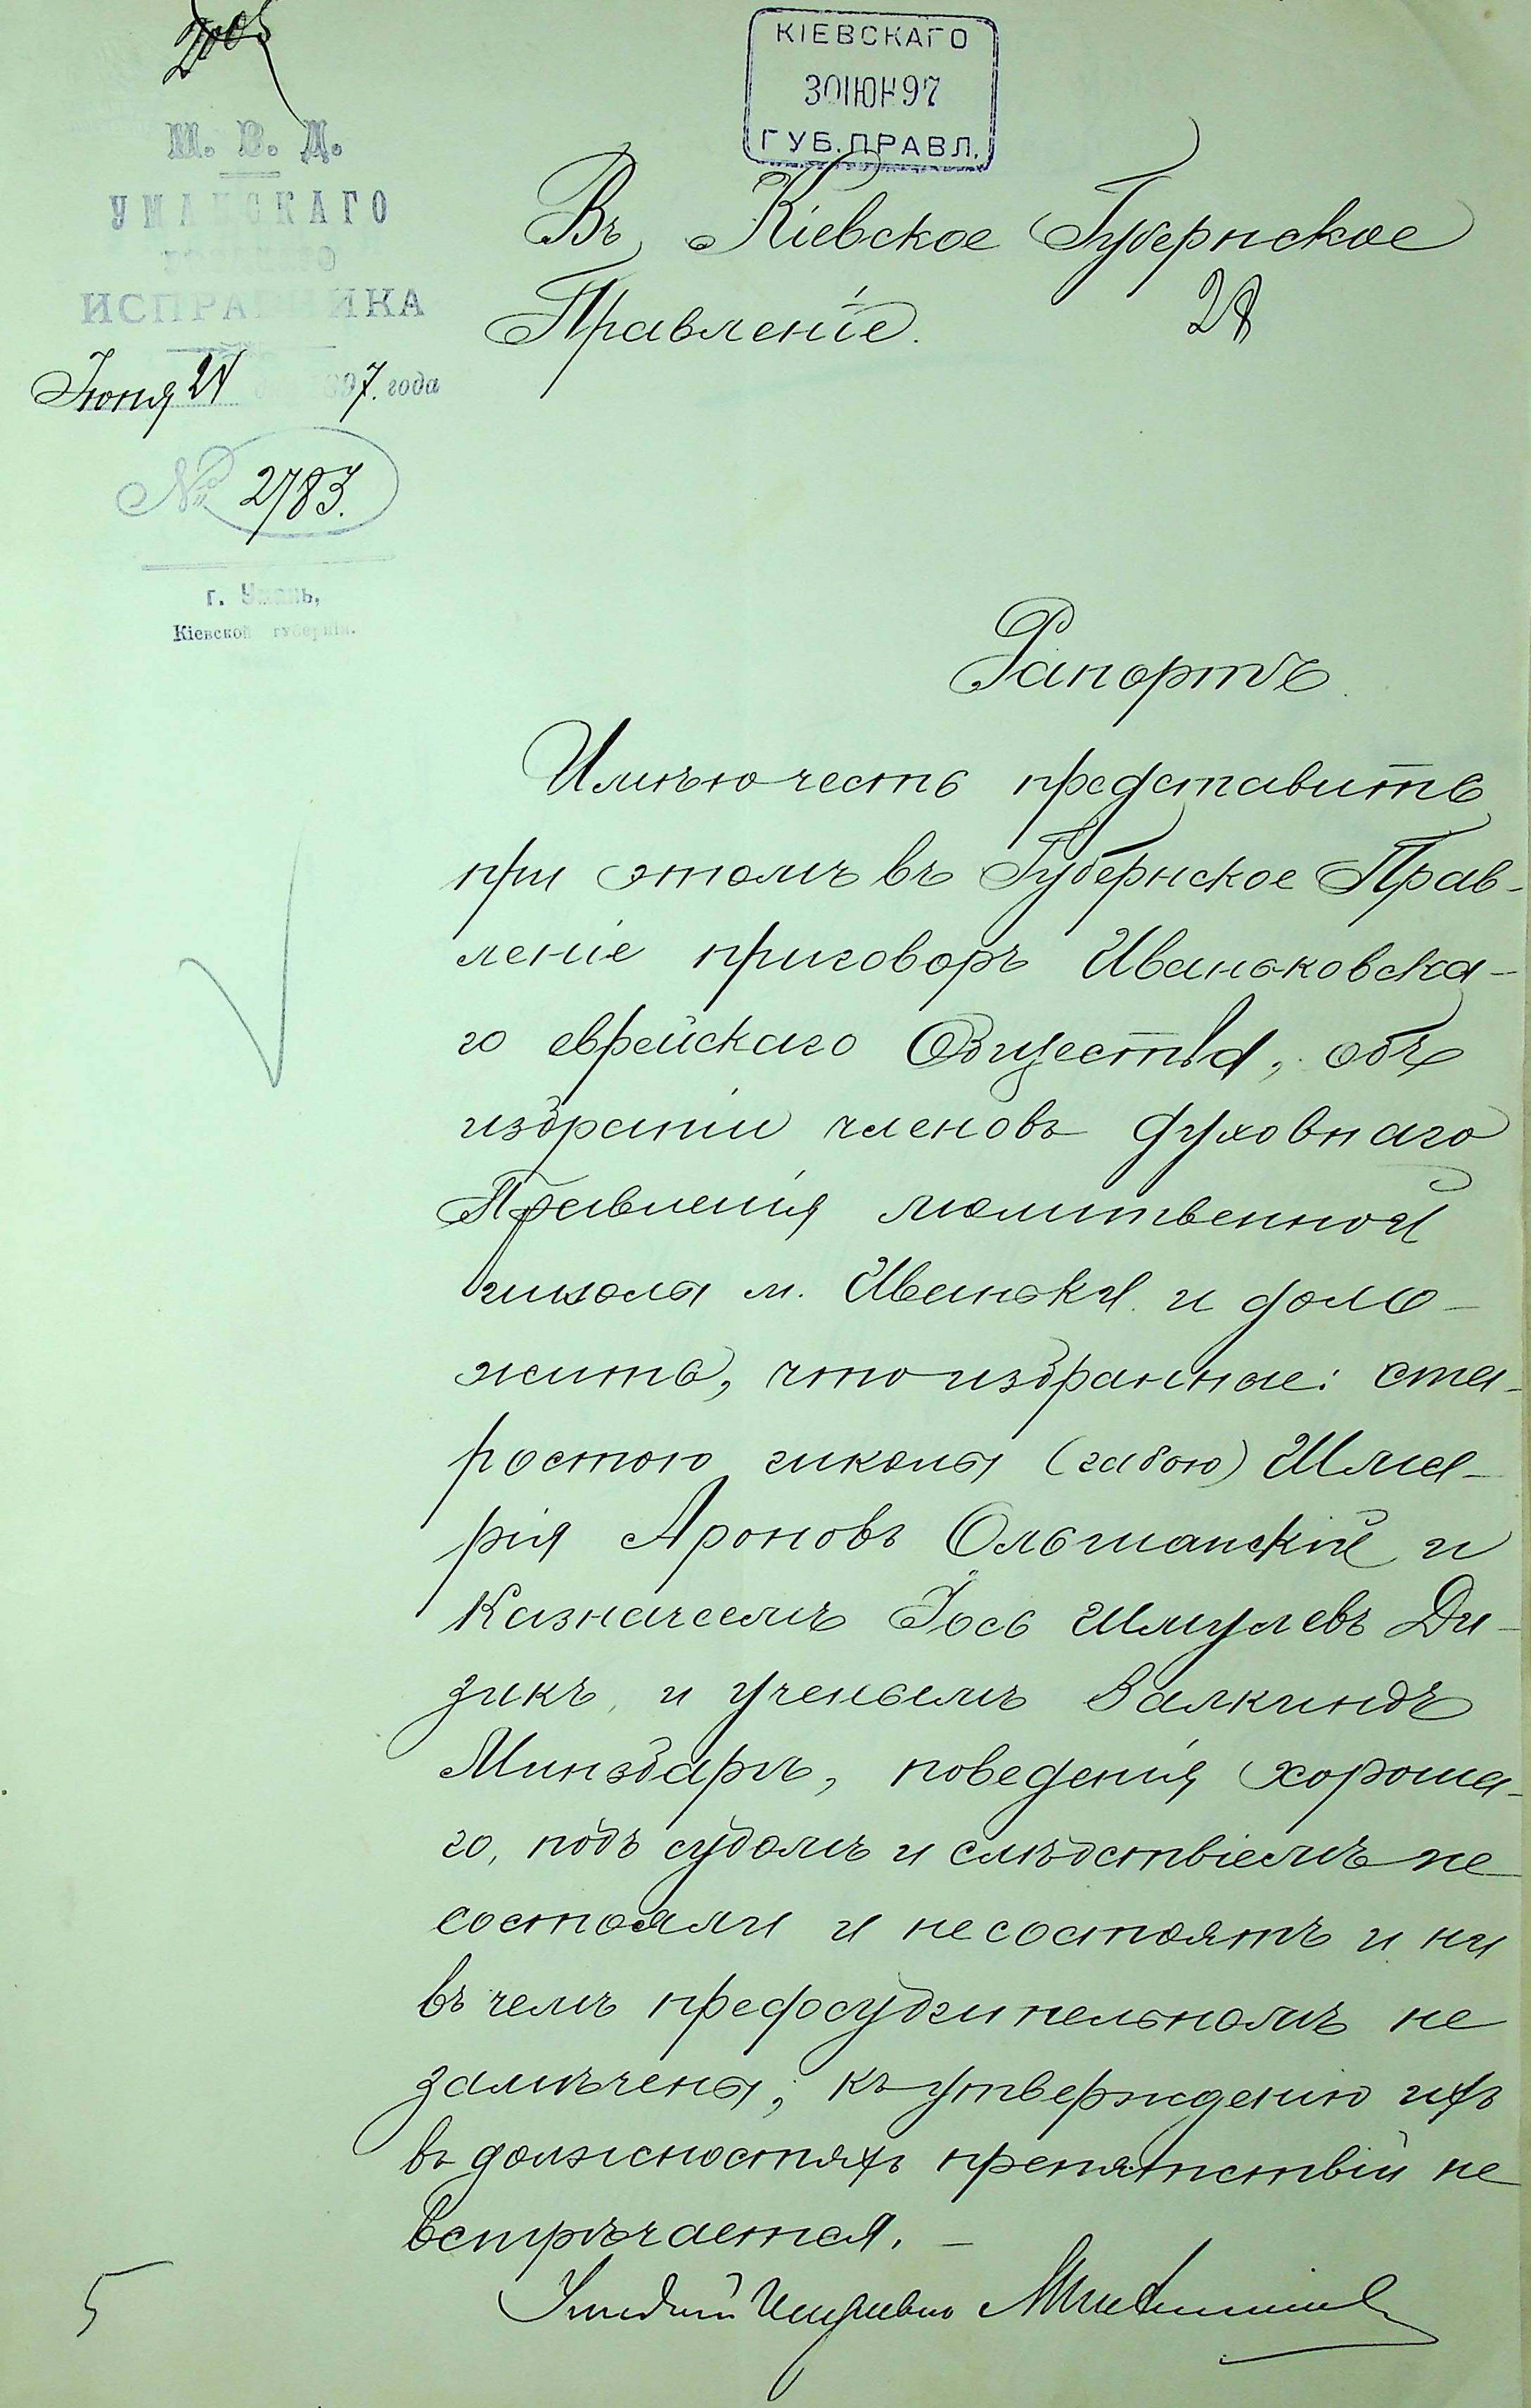 КІЕВСКАГО
30 ІЮН 97
ГУБ. ПРАВЛ.
М. В. Д.
УМАНСКАГО
ИСПРАВНИКА
Іюня 24 1897. года
№ 2783.
г. Умань,
Кіевской губерніи.
Въ Кіевское Губернское
Правленіе.
Рапортъ
Имѣю честь представить
при этомъ въ Губернское Прав-
леніе приговоръ Иваньковска-
го еврейскаго Общества, объ
избраніи членовъ духовнаго
Правленія молитвенной
школы м. Иваньки и доло-
жить, что избранные: ста-
ростою школы (габою) Шма-
рія Ароновъ Ольшанскій и
Казначеемъ Іось Шмулевъ Ди-
зикъ, и ученымъ Залкиндъ
Минзбаръ, поведенія хороша-
го, подъ судомъ и слѣдствіемъ не
состояли и не состоятъ и ни
въ чемъ предосудительномъ не
замѣчены, къ утвержденію ихъ
въ должностяхъ препятствій не
встрѣчается. –
5